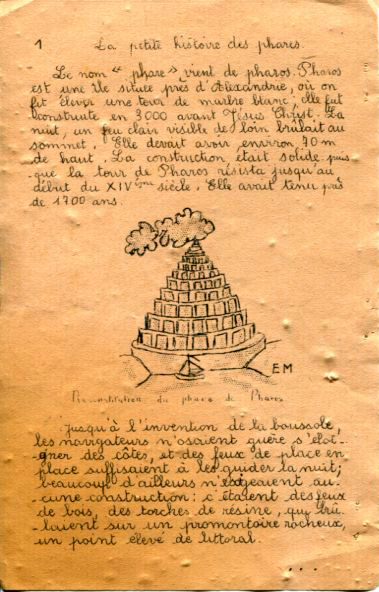 1
La petite histoire des phares.
Le nom " phare " vient de pharos. Pharos
est une île située près d'Alexandrie, où on
fit élever une tour de marbre blanc, elle fut
construite en 3000 avant Jésus Christ. La
nuit, un feu clair visible de loin brûlait au
sommet. Elle devait avoir environ 70 m
de haut. La construction était solide puis
-que la tour de Pharos résista jusqu'au
début du XIVème siècle. Elle avait tenu près
de 1700 ans.
EM
Reconstitution du phare de Pharos
Jusqu'à l'invention de la boussole,
les navigateurs n'osaient guère s'éloi-
-gner des côtes, et des feux de place en
place suffisaient à les guider la nuit;
beaucoup d'ailleurs n'exigeaient au-
-cune construction : c'étaient des feux
de bois, des torches de résine, qui brû-
-laient sur un promontoire rocheux,
un point élevé de littoral.